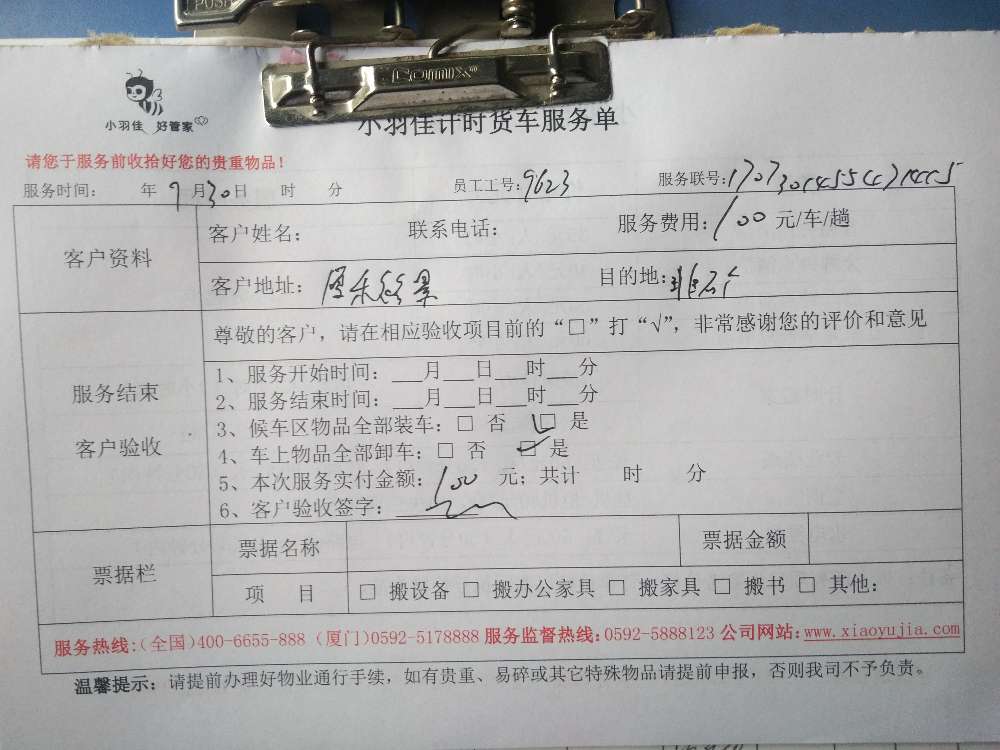 PUSH
comix
小羽佳 好管家
小羽佳计时货车服务单
请您于服务前收拾好您的贵重物品！
服务时间： 年 9月30日 时 分 员工工号：9623 服务联号：
客户资料
客户姓名： 联系电话： 服务费用：100 元/车/趟
客户地址： 目的地：
尊敬的客户，请在相应验收项目前的“□”打“√”，非常感谢您的评价和意见
服务结束
客户验收
1、服务开始时间：___月___日___时___分
2、服务结束时间：___月___日___时___分
3、候车区物品全部装车：□ 否 ☑ 是
4、车上物品全部卸车：□ 否 ☑ 是
5、本次服务实付金额：100 元；共计 时 分
6、客户验收签字：
票据栏
票据名称 票据金额
项 目 □ 搬设备 □ 搬办公家具 □ 搬家具 □ 搬书 □ 其他：
服务热线：（全国）400-6655-888（厦门）0592-5178888 服务监督热线：0592-5888123 公司网站：www.xiaoyujia.com
温馨提示：请提前办理好物业通行手续，如有贵重、易碎或其它特殊物品请提前申报，否则我司不予负责。